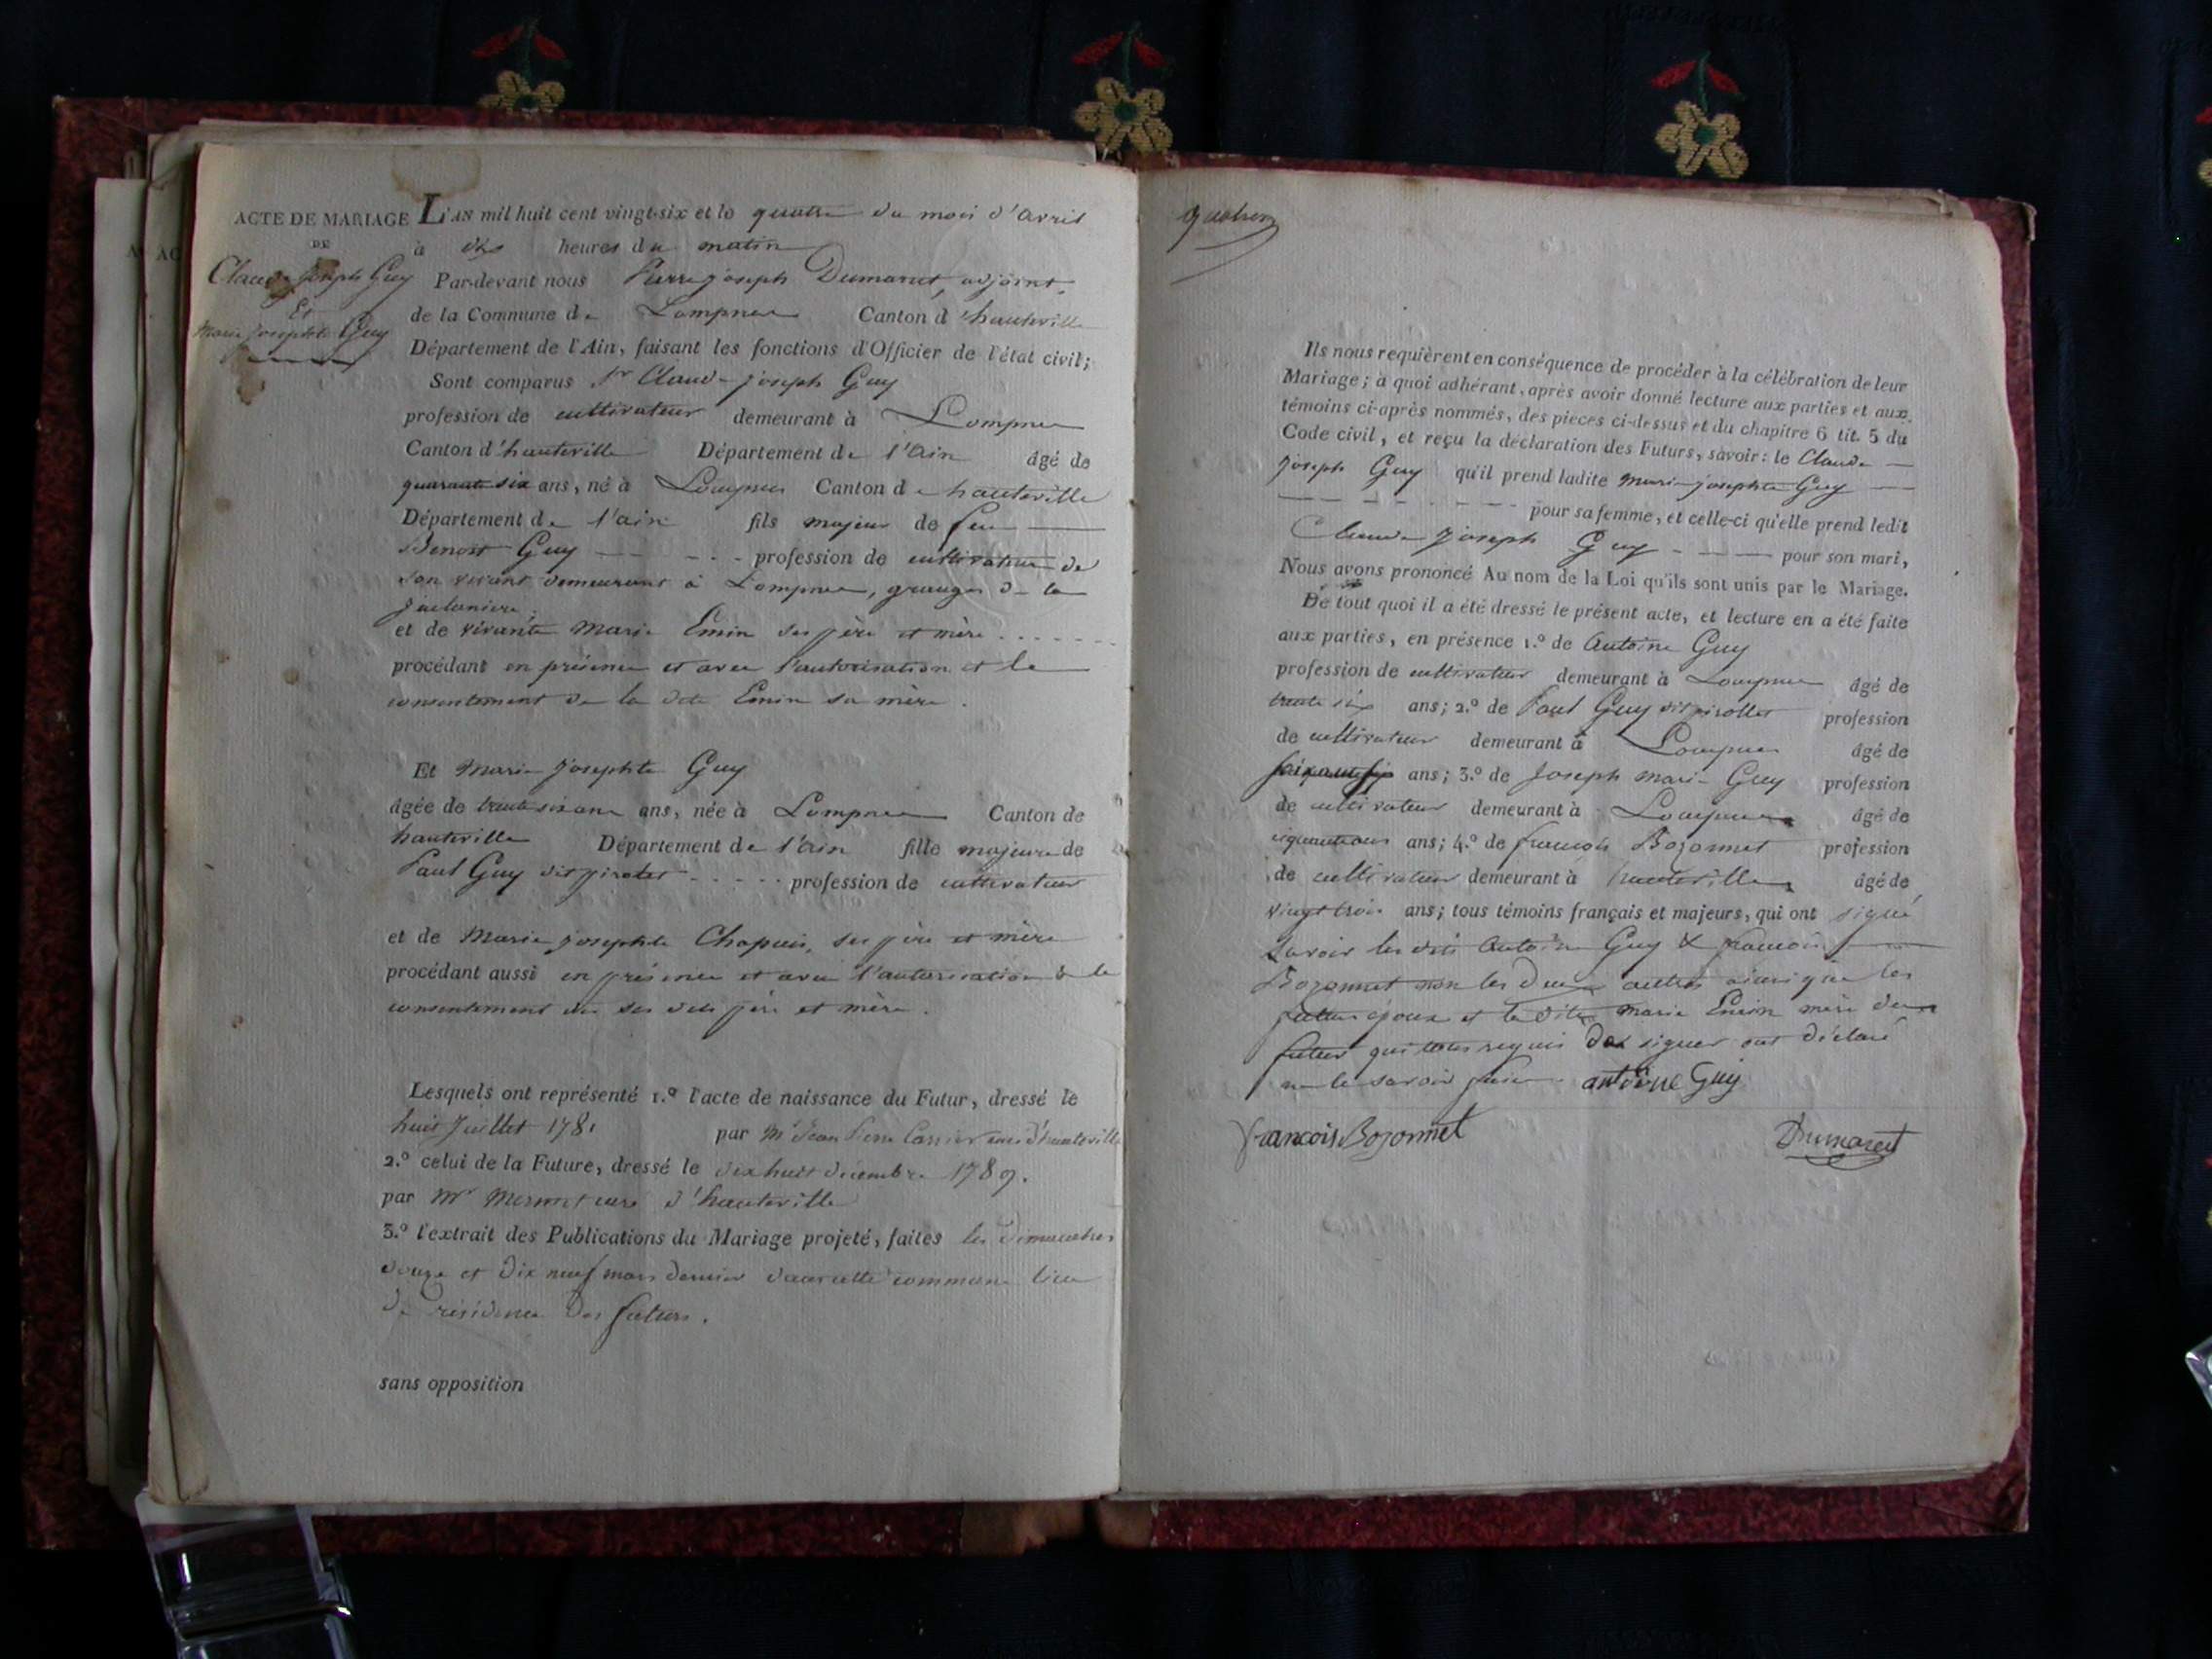 ACTE DE MARIAGE
DE
Claude Joseph Guy
Et
Marie Josephte Guy
L'AN mil huit cent vingt-six et le quatre du mois d'avril
à dix heures du matin
Par-devant nous Pierre joseph Dumaret, adjoint
de la Commune de Lompnes Canton d'hauteville
Département de l'Ain, faisant les fonctions d'Officier de l'état civil;
Sont comparus Sr Claude joseph Guy
profession de cultivateur demeurant à Lompnes
Canton d'hauteville Département de l'Ain âgé de
quarante six ans, né à Lompnes Canton de hauteville
Département de l'ain fils majeur de feu
Benoit Guy profession de cultivateur de
son vivant demeurant à Lompnes, granges de la
et de vivante Marie Emin ses père et mère
procédant en présence et avec l'autorisation et le
consentement de la dite Emin sa mère.
Et Marie josephte Guy
âgée de trente six ans, née à Lompnes Canton de
hauteville Département de l'ain fille majeure de
Paul Guy dit pirolet profession de cultivateur
et de Marie josephte Chapuis, ses père et mère
procédant aussi en présence et avec l'autorisation & le
consentement de ses dits père et mère.
Lesquels ont représenté 1.º l'acte de naissance du Futur, dressé le
huit Juillet 1781 par Mr Jean Pierre Carrier curé d'hauteville
2.º celui de la Future, dressé le dix huit décembre 1789.
par Mr Mermet curé d'hauteville
3.º l'extrait des Publications du Mariage projeté, faites les dimanches
douze et dix neuf mars dernier dans cette commune lieu
de résidence des futurs.
sans opposition
Ils nous requièrent en conséquence de procéder à la célébration de leur
Mariage; à quoi adhérant, après avoir donné lecture aux parties et aux
témoins ci-après nommés, des pieces ci-dessus et du chapitre 6 tit. 5 du
Code civil, et reçu la déclaration des Futurs, savoir: le Claude
joseph Guy qu'il prend ladite marie josephte Guy
pour sa femme, et celle-ci qu'elle prend ledit
Claude Joseph Guy pour son mari,
Nous avons prononcé Au nom de la Loi qu'ils sont unis par le Mariage.
De tout quoi il a été dressé le présent acte, et lecture en a été faite
aux parties, en présence 1.º de Antoine Guy
profession de cultivateur demeurant à Lompnes âgé de
trente six ans; 2.º de Paul Guy dit pirollet profession
de cultivateur demeurant à Lompnes âgé de
ans; 3.º de Joseph marie Guy profession
de cultivateur demeurant à Lompnes âgé de
ans; 4.º de françois Bozonnet profession
de cultivateur demeurant à hauteville âgé de
vingt trois ans; tous témoins français et majeurs, qui ont signé
savoir les dits Antoine Guy & françois
Bozonnet non les deux autres ainsi que les
futurs époux et la dite marie Emin mère du
futur qui tous requis de signer ont déclaré
ne le savoir faire. antoine Guy
francois Bozonnet Dumaret